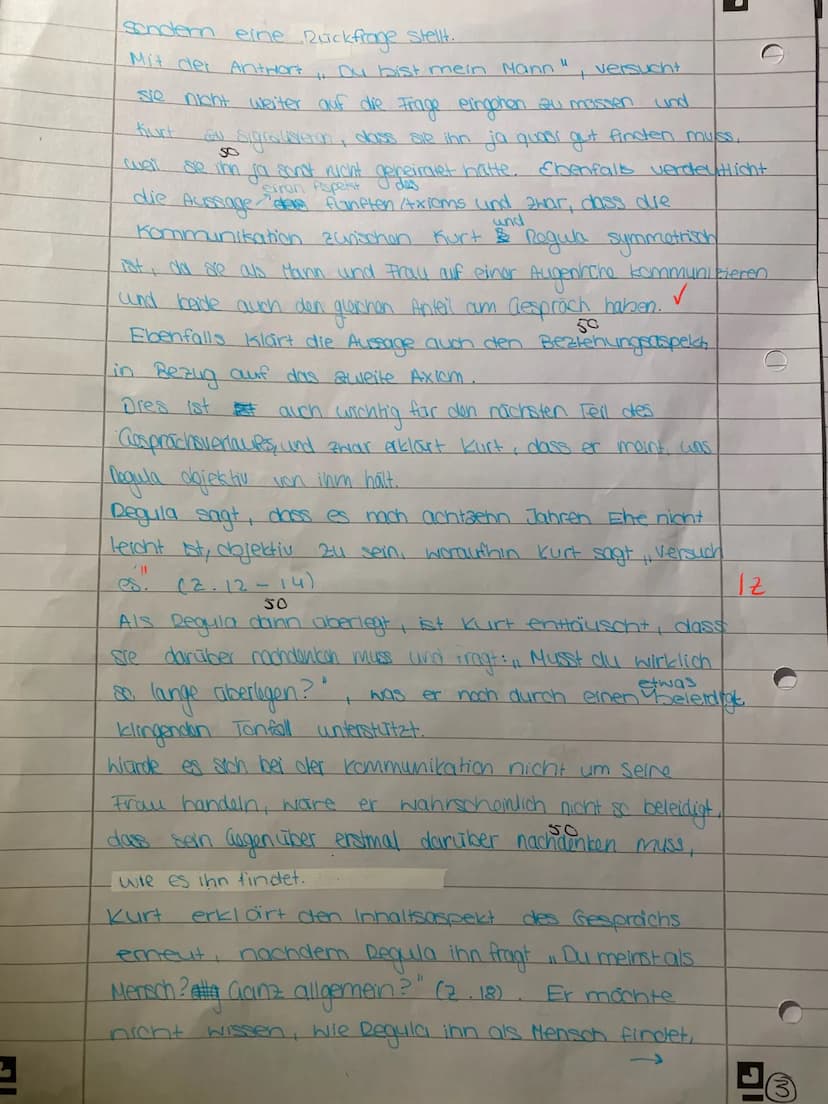 sondern eine Rückfrage stellt.
Mit der Antwort „Du bist mein Mann", versucht
sie nicht weiter auf die Frage eingehen zu müssen und
Kurt zu signalisieren, dass sie ihn ja quasi gut finden muss,
50
weil sie ihn ja sonst nicht geheiratet hätte. Ebenfalls verdeutlicht
einen Aspekt des
die Aussage fünften Axioms und zwar, dass die
und
Kommunikation zwischen Kurt Regula symmetrisch
ist, da sie als Mann und Frau auf einer Augenhöhe kommunizieren
und beide auch den gleichen Anteil am Gespräch haben. ✓
50
Ebenfalls klärt die Aussage auch den Beziehungsaspekt,
in Bezug auf das zweite Axiom.
Dies ist auch wichtig für den nächsten Teil des
Gesprächsverlaufes, und zwar erklärt Kurt, dass er meint, was
Regula objektiv von ihm hält.
Regula sagt, dass es nach achtzehn Jahren Ehe nicht
leicht ist, objektiv zu sein, woraufhin Kurt sagt „Versuch
es." (Z. 12 - 14) IZ
50
Als Regula dann überlegt, ist Kurt enttäuscht, dass
sie darüber nachdenken muss und fragt: „Musst du wirklich
etwas
so lange überlegen?", was er noch durch einen beleidigt
klingenden Tonfall unterstützt.
Würde es sich bei der Kommunikation nicht um seine
Frau handeln, wäre er wahrscheinlich nicht so beleidigt,
50
dass sein Gegenüber erstmal darüber nachdenken muss,
wie es ihn findet.
Kurt erklärt den Inhaltsaspekt des Gesprächs
erneut, nachdem Regula ihn fragt „Du meinst als
Mensch? Ganz allgemein?" (Z. 18). Er möchte
nicht wissen, wie Regula ihn als Mensch findet,
→
3